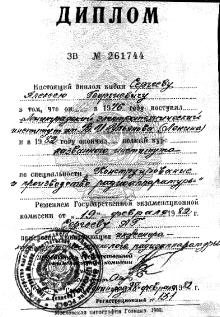 ДИПЛОМ
ЗВ № 261744
Настоящий диплом выдан Сергееву
Алексею Георгиевичу
в том, что он в 1976 году поступил
в Ленинградский электротехнический
институт им. В.И. Ульянова (Ленина)
и в 1982 окончил полный курс
названного института
по специальности Конструирование
и производство радиоаппаратуры
Решением Государственной экзаменационной
комиссии от 19 февраля 1982 г.
Сергееву А.Г.
присвоена квалификация инженера
радиоаппаратуры
февраля 82
Регистрационный №
Московская типография Гознака. 1980.